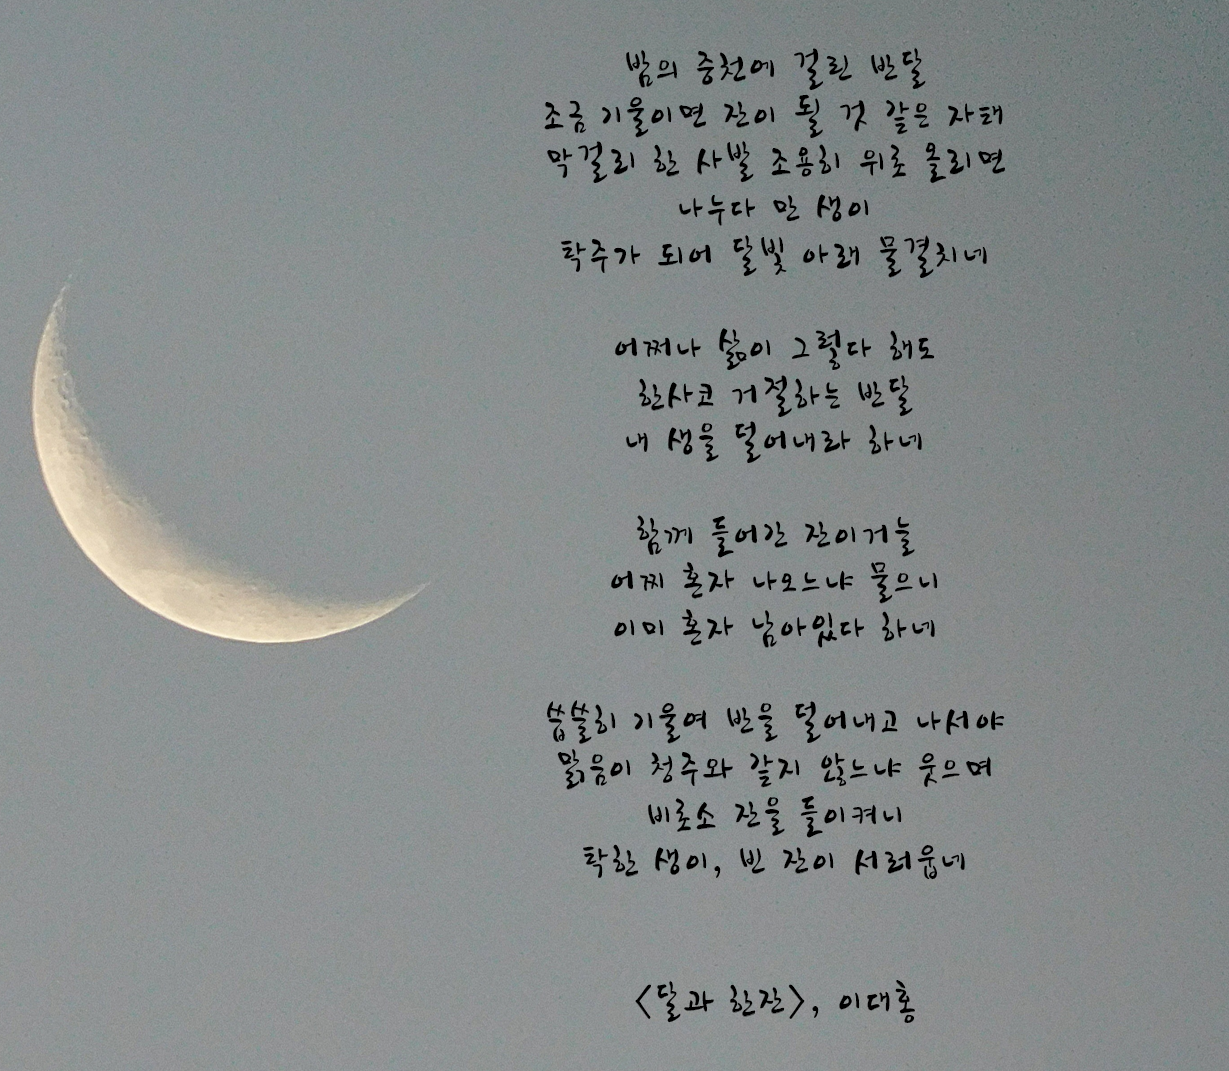 밤의 중천에 걸린 반달
조금 기울이면 잔이 될 것 같은 자태
막걸리 한 사발 조용히 위로 올리면
나누다 만 생이
탁주가 되어 달빛 아래 물결치네
어쩌나 삶이 그렇다 해도
한사코 거절하는 반달
내 생을 덜어내라 하네
함께 들어간 잔이거늘
어찌 혼자 나오느냐 물으니
이미 혼자 남아있다 하네
씁쓸히 기울여 반을 덜어내고 나서야
맑음이 청주와 같지 않느냐 웃으며
비로소 잔을 들이켜니
탁한 생이, 빈 잔이 서러웁네
<달과 한잔>, 이대홍